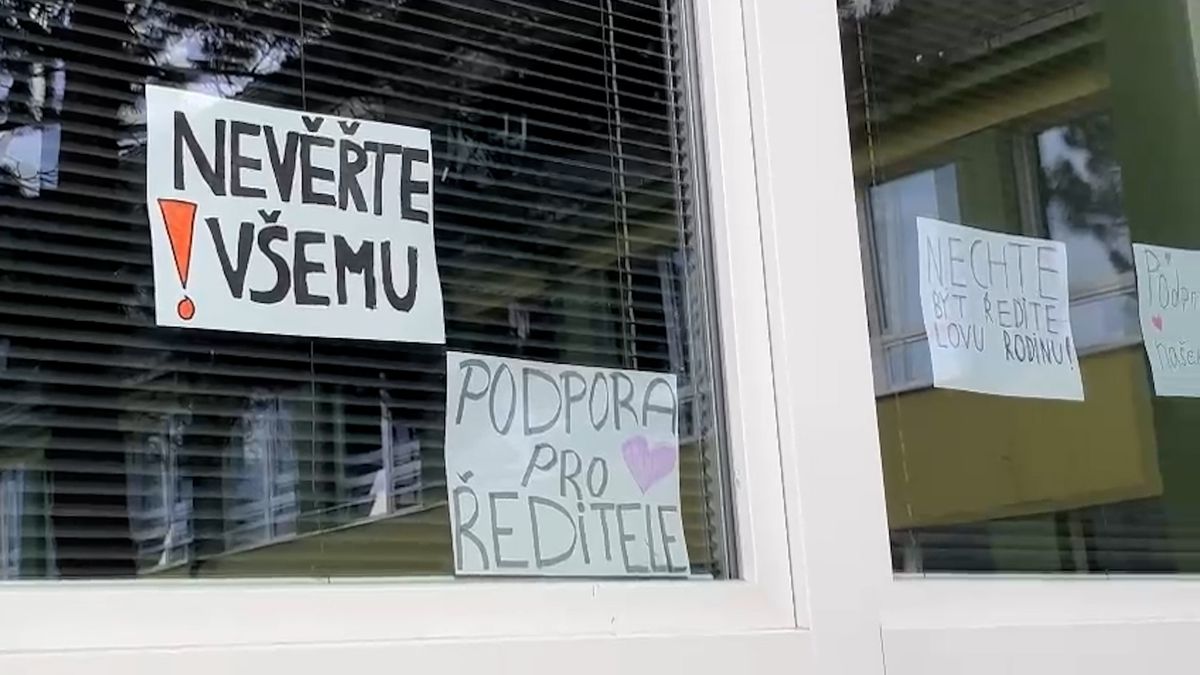 NEVĚŘTE
! VŠEMU
PODPORA
PRO
ŘEDiTELE
NECHTE
BÝT ŘEDITE
LOVU RODINU!